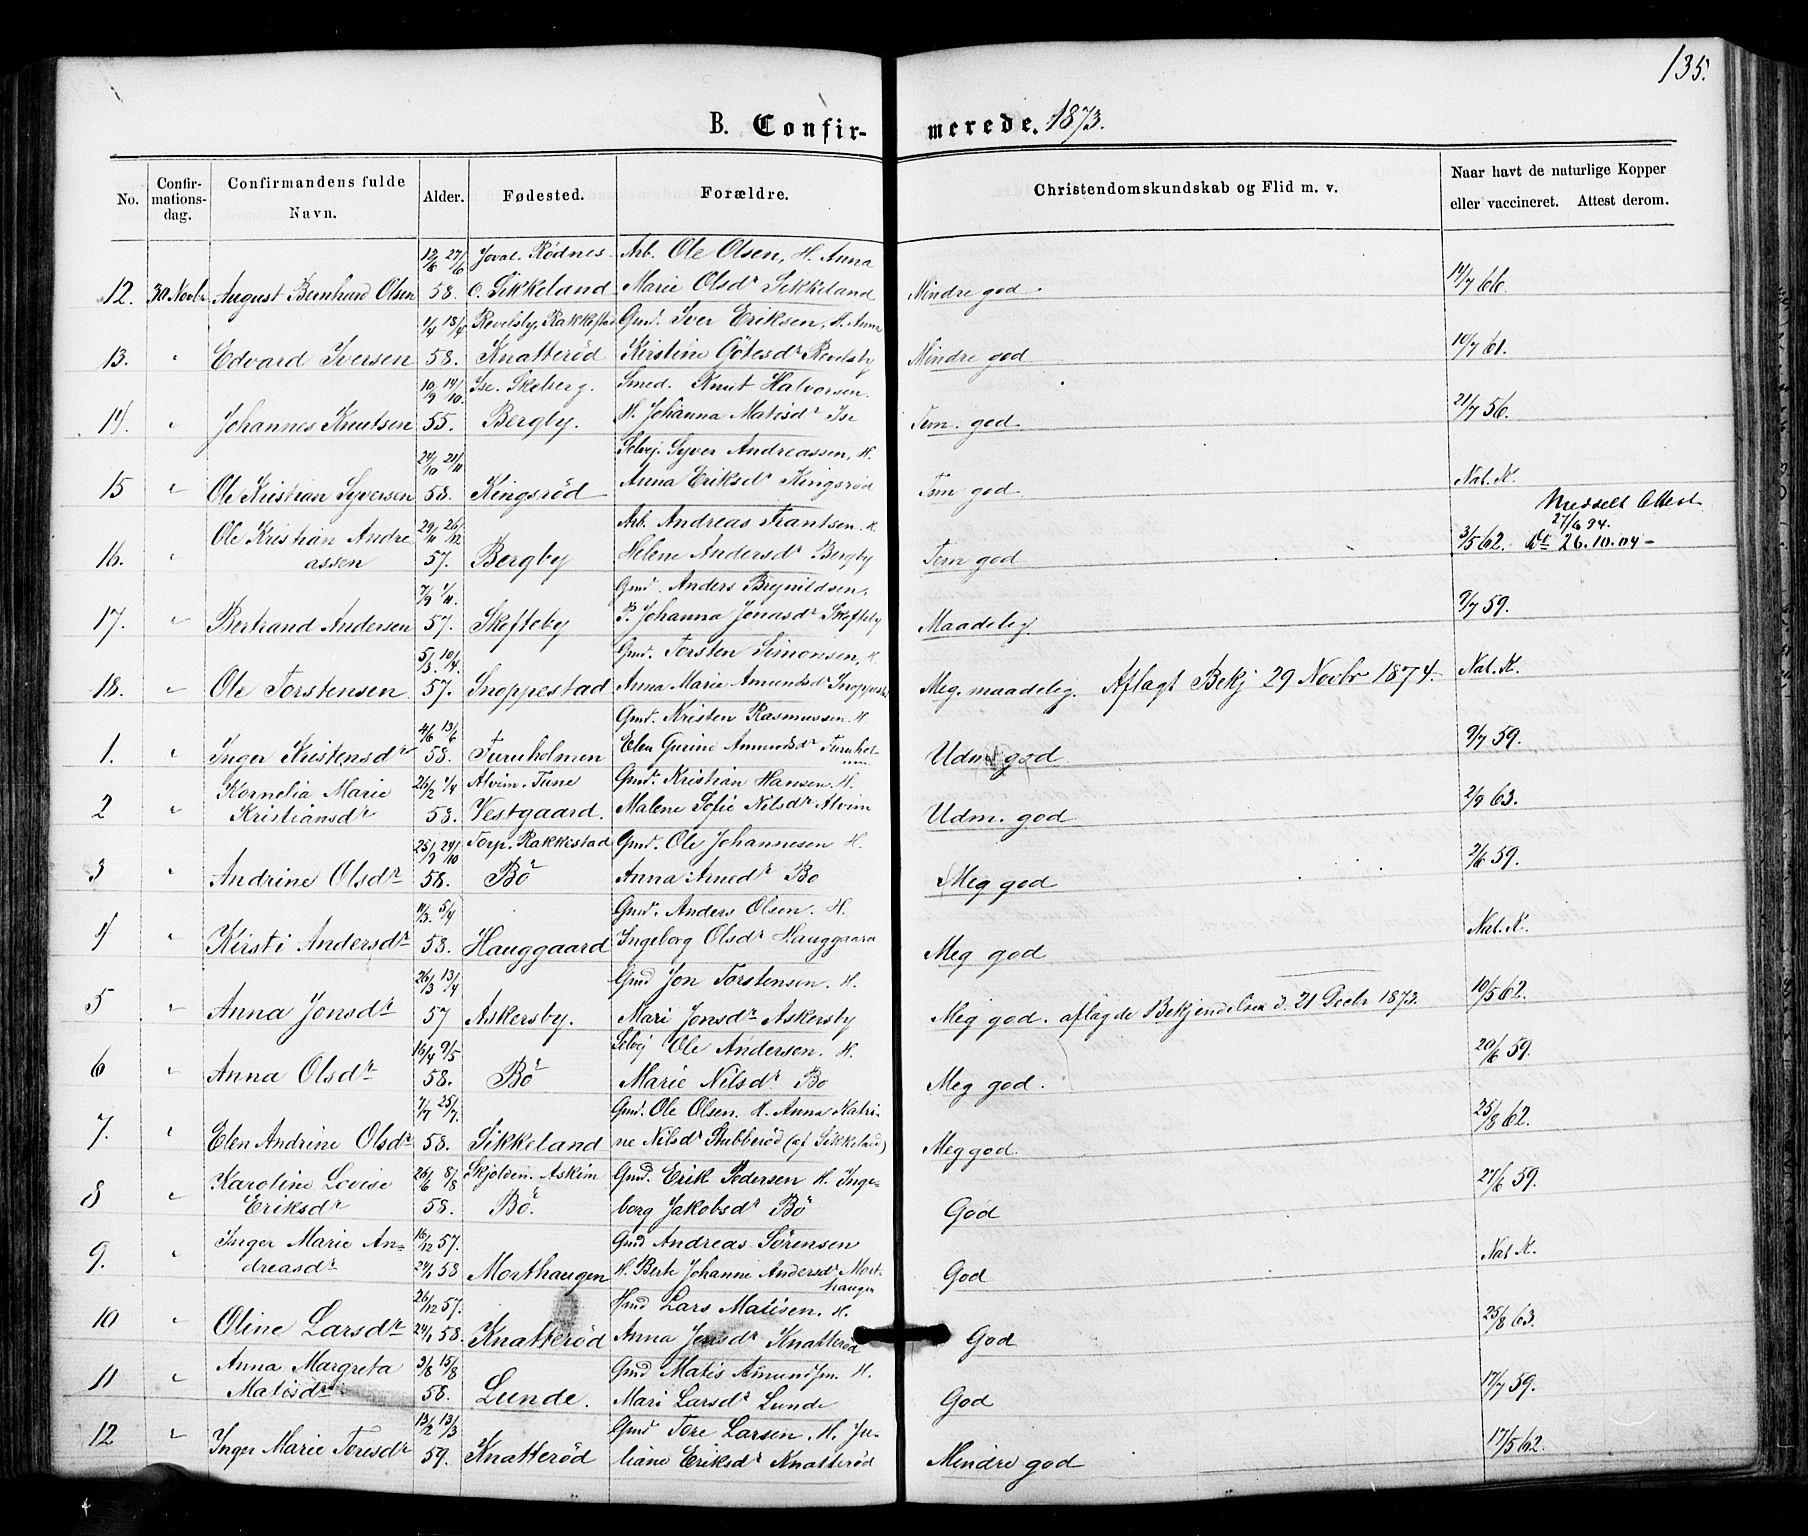 135.
B. Confir- merede. 1873.
No. Confir-mations-dag. Confirmandens fulde Navn. Alder. Fødested. Forældre. Christendomskundskab og Flid m. v. Naar havt de naturlige Kopper eller vaccineret. Attest derom.
12/6 27/6 Joval. Rødnes Arb. Ole Olsen, H. Anna
12. 30 Novbr August Bernhard Olsen 58. o. Sikkeland Marie Olsdr Sikkeland Mindre god. 14/7 66.
1/4 18/4 Revelsby, Rakkestad Gmd. Iver Eriksen, H. Anna
13. " Edvard Iversen 58. Knatterød Kirstine Götesdr Revelsby Mindre god 10/7 61.
10/9 14/10 Ise. Skeberg. Smed. Knut Halvorsen.
14. " Johannes Knutsen 55. Bergby. H. Johanna Matisdr Ise Tem. god. 21/7 56.
24/10 21/11 Selvej. Syver Andreassen, H.
15 " Ole Kristian Syversen 58. Kingsrød Anna Eriksdr Kingsrød Tem god. Nat. K.
Meddelt Attest
Ole Kristian Andre 29/11 26/12 Arb. Andreas Frantsen. H. 27/6 94.
16. " assen 57. Bergby Helene Andersdr Bergby Tem god 3/5 62. Do 26.10.04-
7/9 1/11. Gmd. Anders Brynildsen,
17. " Bertrand Andersen 57. Skofteby P. Johanna Jonasdr Skofteby Maadelig. 9/7 59.
5/3. 10/4. Gmd. Torsten Simonsen, H.
18. " Ole Torstensen 57. Snoppestad Anna Marie Amundsdr Snoppestd Meg. maadelig. Aflagt Bekj 29 Novbr 1874. Nat. K.
4/6 13/6 Gmd. Kristen Rasmussen. H.
1. " Inger Kristensdr 58. Furuholmen Elen Gurine Amundsdr Furuhol-men Udm god 9/7 59.
Kornelia Marie 26/2 4/4 Alvim. Tune Gmd. Kristian Hansen. H.
2 " Kristiansdr 58. Vestgaard. Malene Sofie Nilsdr Alvim Udm. god 2/9 63.
25/9 24/10 Torp. Rakkestad Gmd. Ole Johannesen H.
3 " Andrine Olsdr 58. Bö Anna Arnedr Bo Meg god 2/6 59.
11/3. 5/4 Gmd. Anders Olsen. H.
4 " Kirsti Andersdr 58. Hauggaard Ingeborg Olsdr Hauggaard Meg god Nat. K.
26/3 13/4 Gmd Jon Torstensen. H.
5 " Anna Jonsdr 57 Askersby. Mari Jonsdr Askersby Meg god. aflagde Bekjendelsen d. 21 Decbr 1873. 10/5 62.
16/4 9/5 Selvej Ole Andersen. H.
6 " Anna Olsdr 58. Bö Marie Nilsdr Bo Meg god. 20/6 59.
7/7 25/7. Gmd. Ole Olsen. H. Anna Katri-
7. " Elen Andrine Olsdr 58. Sikkeland ne Nilsdr Stubberød (af Sikkeland) Meg god. 25/8 62.
Karoline Lovise 26/6 8/8 Skjolden. Askim Gmd. Erik Pedersen H. Inge-
8 " Eriksdr 58. Bö. borg Jakobsdr Bö God 27/6 59.
Inger Marie An- 16/12 57. Gmd Andreas Sörensen
9. " dreasdr 24/1 58 Morthaugen H. Berte Johanne Andersdr Mort-haugen God Nat K.
26/12 57. Hmd Lars Matisen. H.
10 " Oline Larsdr 24/1 58. Knatterød Anna Jensdr Knatterød God 25/8 63.
Anna Margreta 3/6 15/8 Gmd Matis Amundsen. H.
11 " Matisdr 58. Lunde. Mari Larsdr Lunde God 17/7 59.
13/2 13/3 Gmd Tore Larsen. H. Ju-
12 " Inger Marie Toresdr 59. Knatterød liane Eriksdr Knatterød Mindre god 17/5 62.